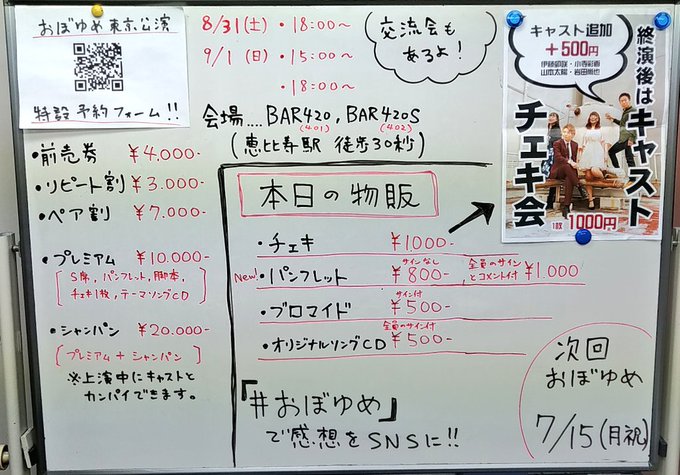 おぼゆめ 東京公演
特設 予約フォーム!!
8/31(土)・18:00～
9/1(日)・15:00～
・18:00～
交流会も
あるよ!
会場....BAR420, BAR420S
(401) (402)
(恵比寿駅 徒歩30秒)
・前売券 ¥4,000-
・リピート割 ¥3,000-
・ペア割 ¥7,000-
・プレミアム ¥10,000-
[S席, パンフレット, 脚本,
チェキ1枚, テーマソングCD]
・シャンパン ¥20,000-
[プレミアム+シャンパン]
※上演中にキャストと
カンパイできます。
本日の物販
・チェキ ¥1,000-
New! ・パンフレット サインなし ¥800- 全員のサインとコメント付 ¥1,000
・ブロマイド サイン付 ¥500-
・オリジナルソングCD 全員のサイン付 ¥500-
「#おぼゆめ」
で感想をSNSに!!
次回
おぼゆめ
7/15(月祝)
キャスト追加
+500円
山本太陽・岩田
終演後はキャスト
チェキ会
1枚 1000円